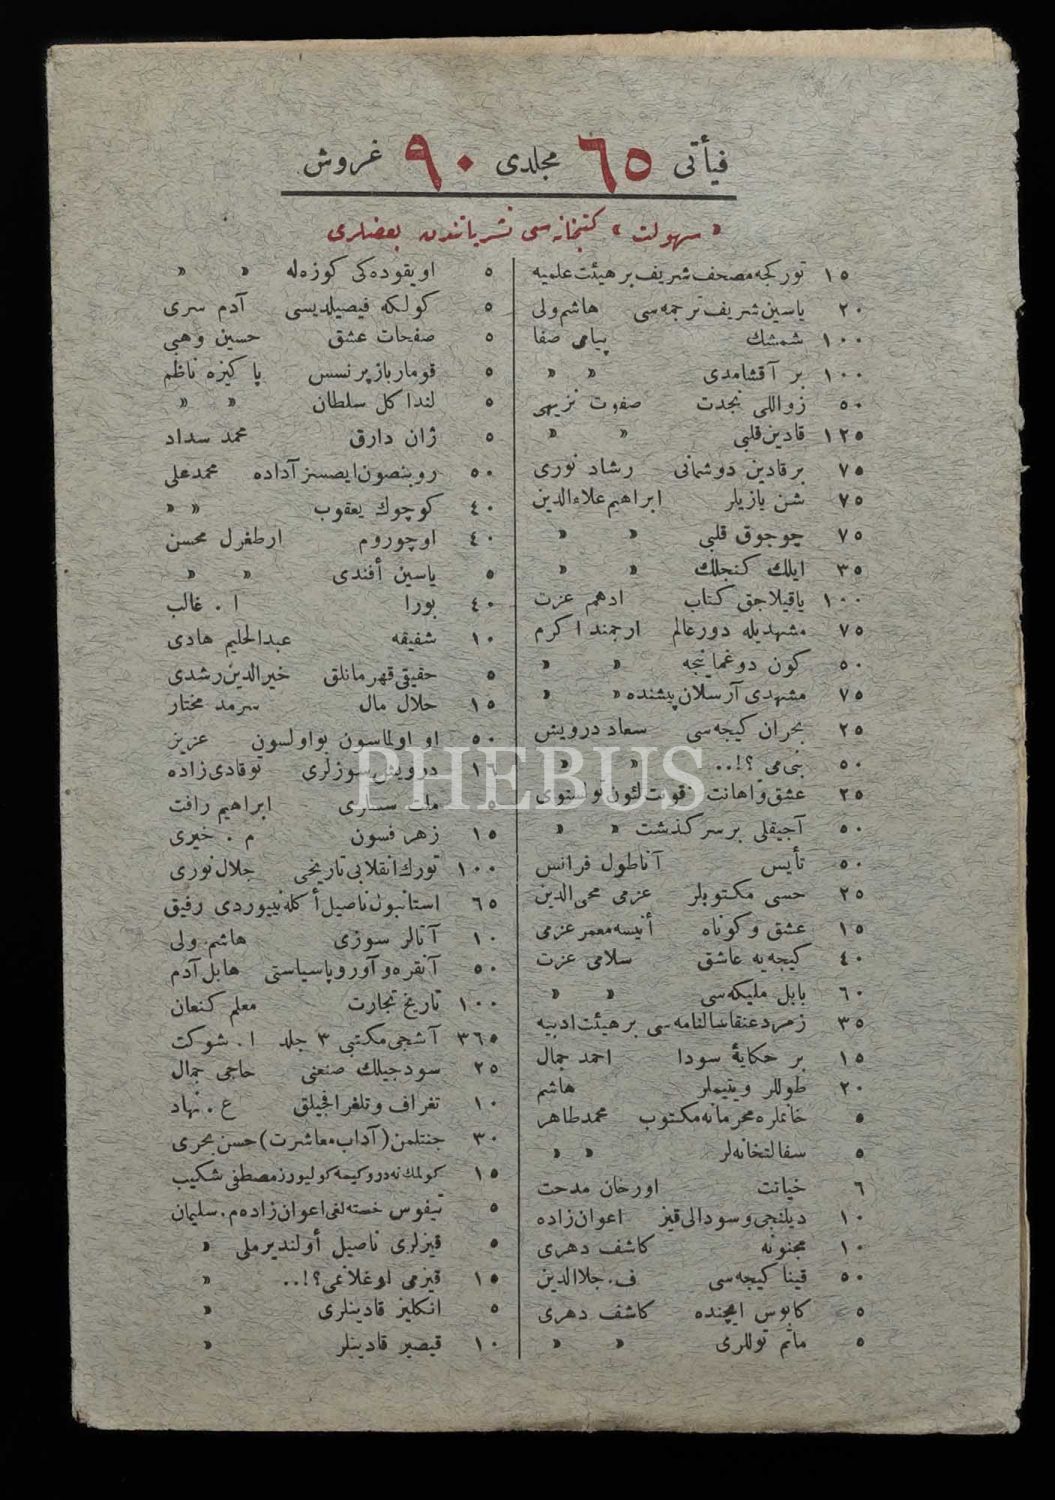 فيأتى ٦٥ مجلدى ٩٠ غروش
« سهولت » كتبخانه سى نشرياتندن بعضلرى
١٥ توركجه مصحف شريف بر هيئت علميه
٢٠ ياسين شريف ترجمه سى هاشم ولى
١٠٠ شمشك پيامى صفا
١٠٠ بر آقشامدى » »
٥٠ زواللى نجدت صفوت نزيهى
١٢٥ قادين قلبى » »
٧٥ بر قادين دوشمانى رشاد نورى
٧٥ شن يازيلر ابراهيم علاءالدين
٧٥ چوجوق قلبى » »
٣٥ ايلك كنجلك » »
١٠٠ ياقيلاجق كتاب ادهم عزت
٧٥ مشهديله دور عالم ارجمند اكرم
٥٠ كون دوغماينجه » »
٧٥ مشهدى آرسلان پيشنده » »
٢٥ بحران كيجه سى سعاد درويش
٥٠ بنى مى ؟!.. » »
٢٥ عشق و اهانت قونت لئون تولستوى
٥٠ آجيقلى بر سركذشت » »
٥٠ تأيس آناطول فرانس
٢٥ حسى مكتوبلر عزمى محى الدين
١٥ عشق و كوناه أنيسه معمر عزمى
٤٠ كيجه يه عاشق سلامى عزت
٦٠ بابل مليكه سى » »
٣٥ زمرد عنقا سالنامه سى بر هيئت ادبيه
١٥ بر حكايۀ سودا احمد جمال
٢٠ طوللر و يتيملر هاشم
٥ خانملره محرمانه مكتوب محمد طاهر
٥ سفالتخانه لر » »
٦ خيانت اورخان مدحت
١٠ ديلنجى و سودالى قيز اعوان زاده
١٠ مجنونه كاشف دهرى
٥٠ قينا كيجه سى ف. جلاالدين
٥ كابوس ايچنده كاشف دهرى
٥ ماتم توللرى » »
٥ اويقوده كى كوزه له » »
٥ كولكه فيصيلديسى آدم سرى
٥ صفحات عشق حسين وهبى
٥ قومارباز پرنسس پاكيزه ناظم
٥ لنداكل سلطان » »
٥ ژان دارق محمد سداد
٥٠ روبنصون ايصسز آداده محمد على
٤٠ كوچوك يعقوب » »
٤٠ اوچوروم ارطغرل محسن
٥ ياسين أفندى » »
٤٠ بورا ا . غالب
١٠ شفيقه عبدالحليم هادى
٥ حقيقى قهرمانلق خيرالدين رشدى
١٥ حلال مال سرمد مختار
٥٠ او اولماسون بو اولسون عزيز
درويش سوزلرى توقادى زاده
ابراهيم رافت
١٥ زهر فسون م . خيرى
١٠٠ تورك انقلابى تاريخى جلال نورى
٦٥ استانبول ناصيل أكله نييوردى رفيق
١٠ آتالر سوزى هاشم ولى
٥٠ آنقره و آوروپا سياستى هابل آدم
١٠٠ تاريخ تجارت معلم كنعان
٣٦٥ آشجى مكتبى ٣ جلد ا . شوكت
٢٥ سودجيلك صنعتى حاجى جمال
١٠ تغراف و تلغرافجيلق ع . نهاد
٣٠ جنتلمن (آداب معاشرت) حسن بحرى
١٥ كولمك نه در و كيمه كولييورز مصطفى شكيب
٥ تيفوس خسته لغى اعوان زاده م . سليمان
٥ قيزلرى ناصيل أولنديرملى »
١٥ قيزمى اوغلانمى ؟!.. »
٥ انكليز قادينلرى »
١٠ قيصير قادينلر »
PHEBUS